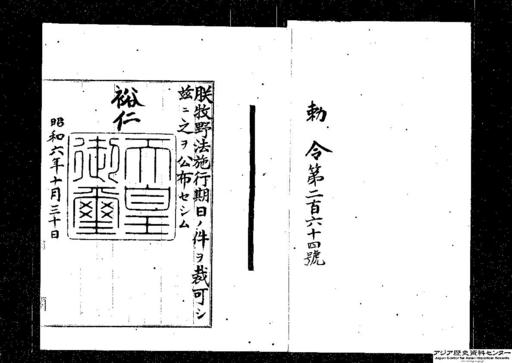 勅令第二百六十四號
朕牧野法施行期日ノ件ヲ裁可シ
玆ニ之ヲ公布セシム
裕仁
天皇
御璽
昭和六年十月三十日
アジア歴史資料センター
Japan Center for Asian Historical Records